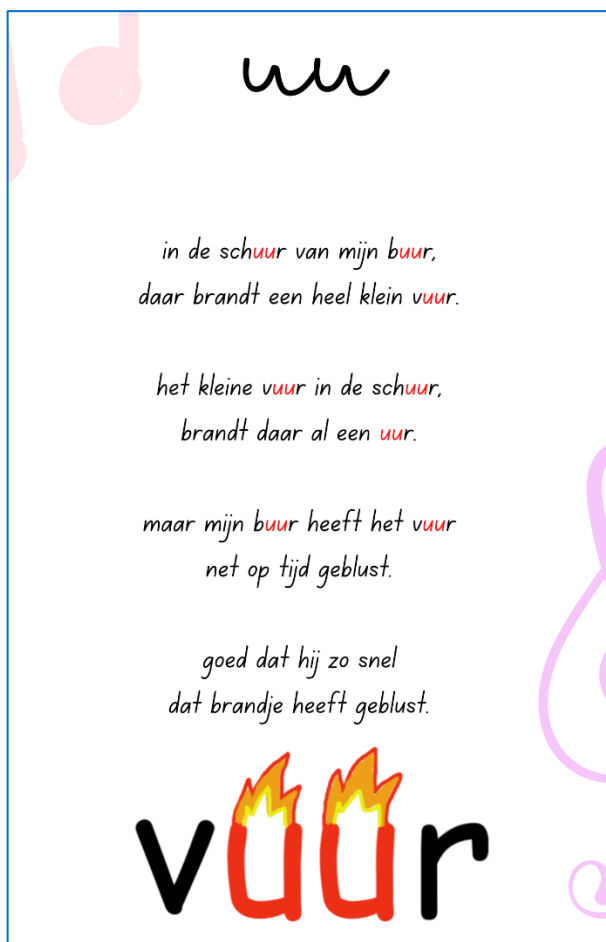 uu
in de schuur van mijn buur,
daar brandt een heel klein vuur.
het kleine vuur in de schuur,
brandt daar al een uur.
maar mijn buur heeft het vuur
net op tijd geblust.
goed dat hij zo snel
dat brandje heeft geblust.
vuur